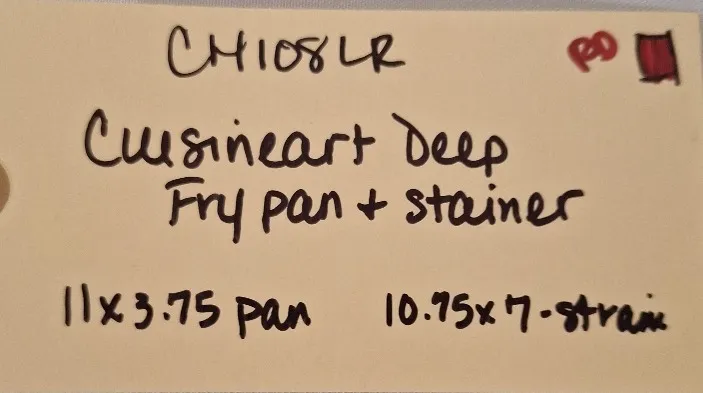 CH108LR
Cuisineart Deep
Fry pan + stainer
11x3.75 pan 10.75x7-strain